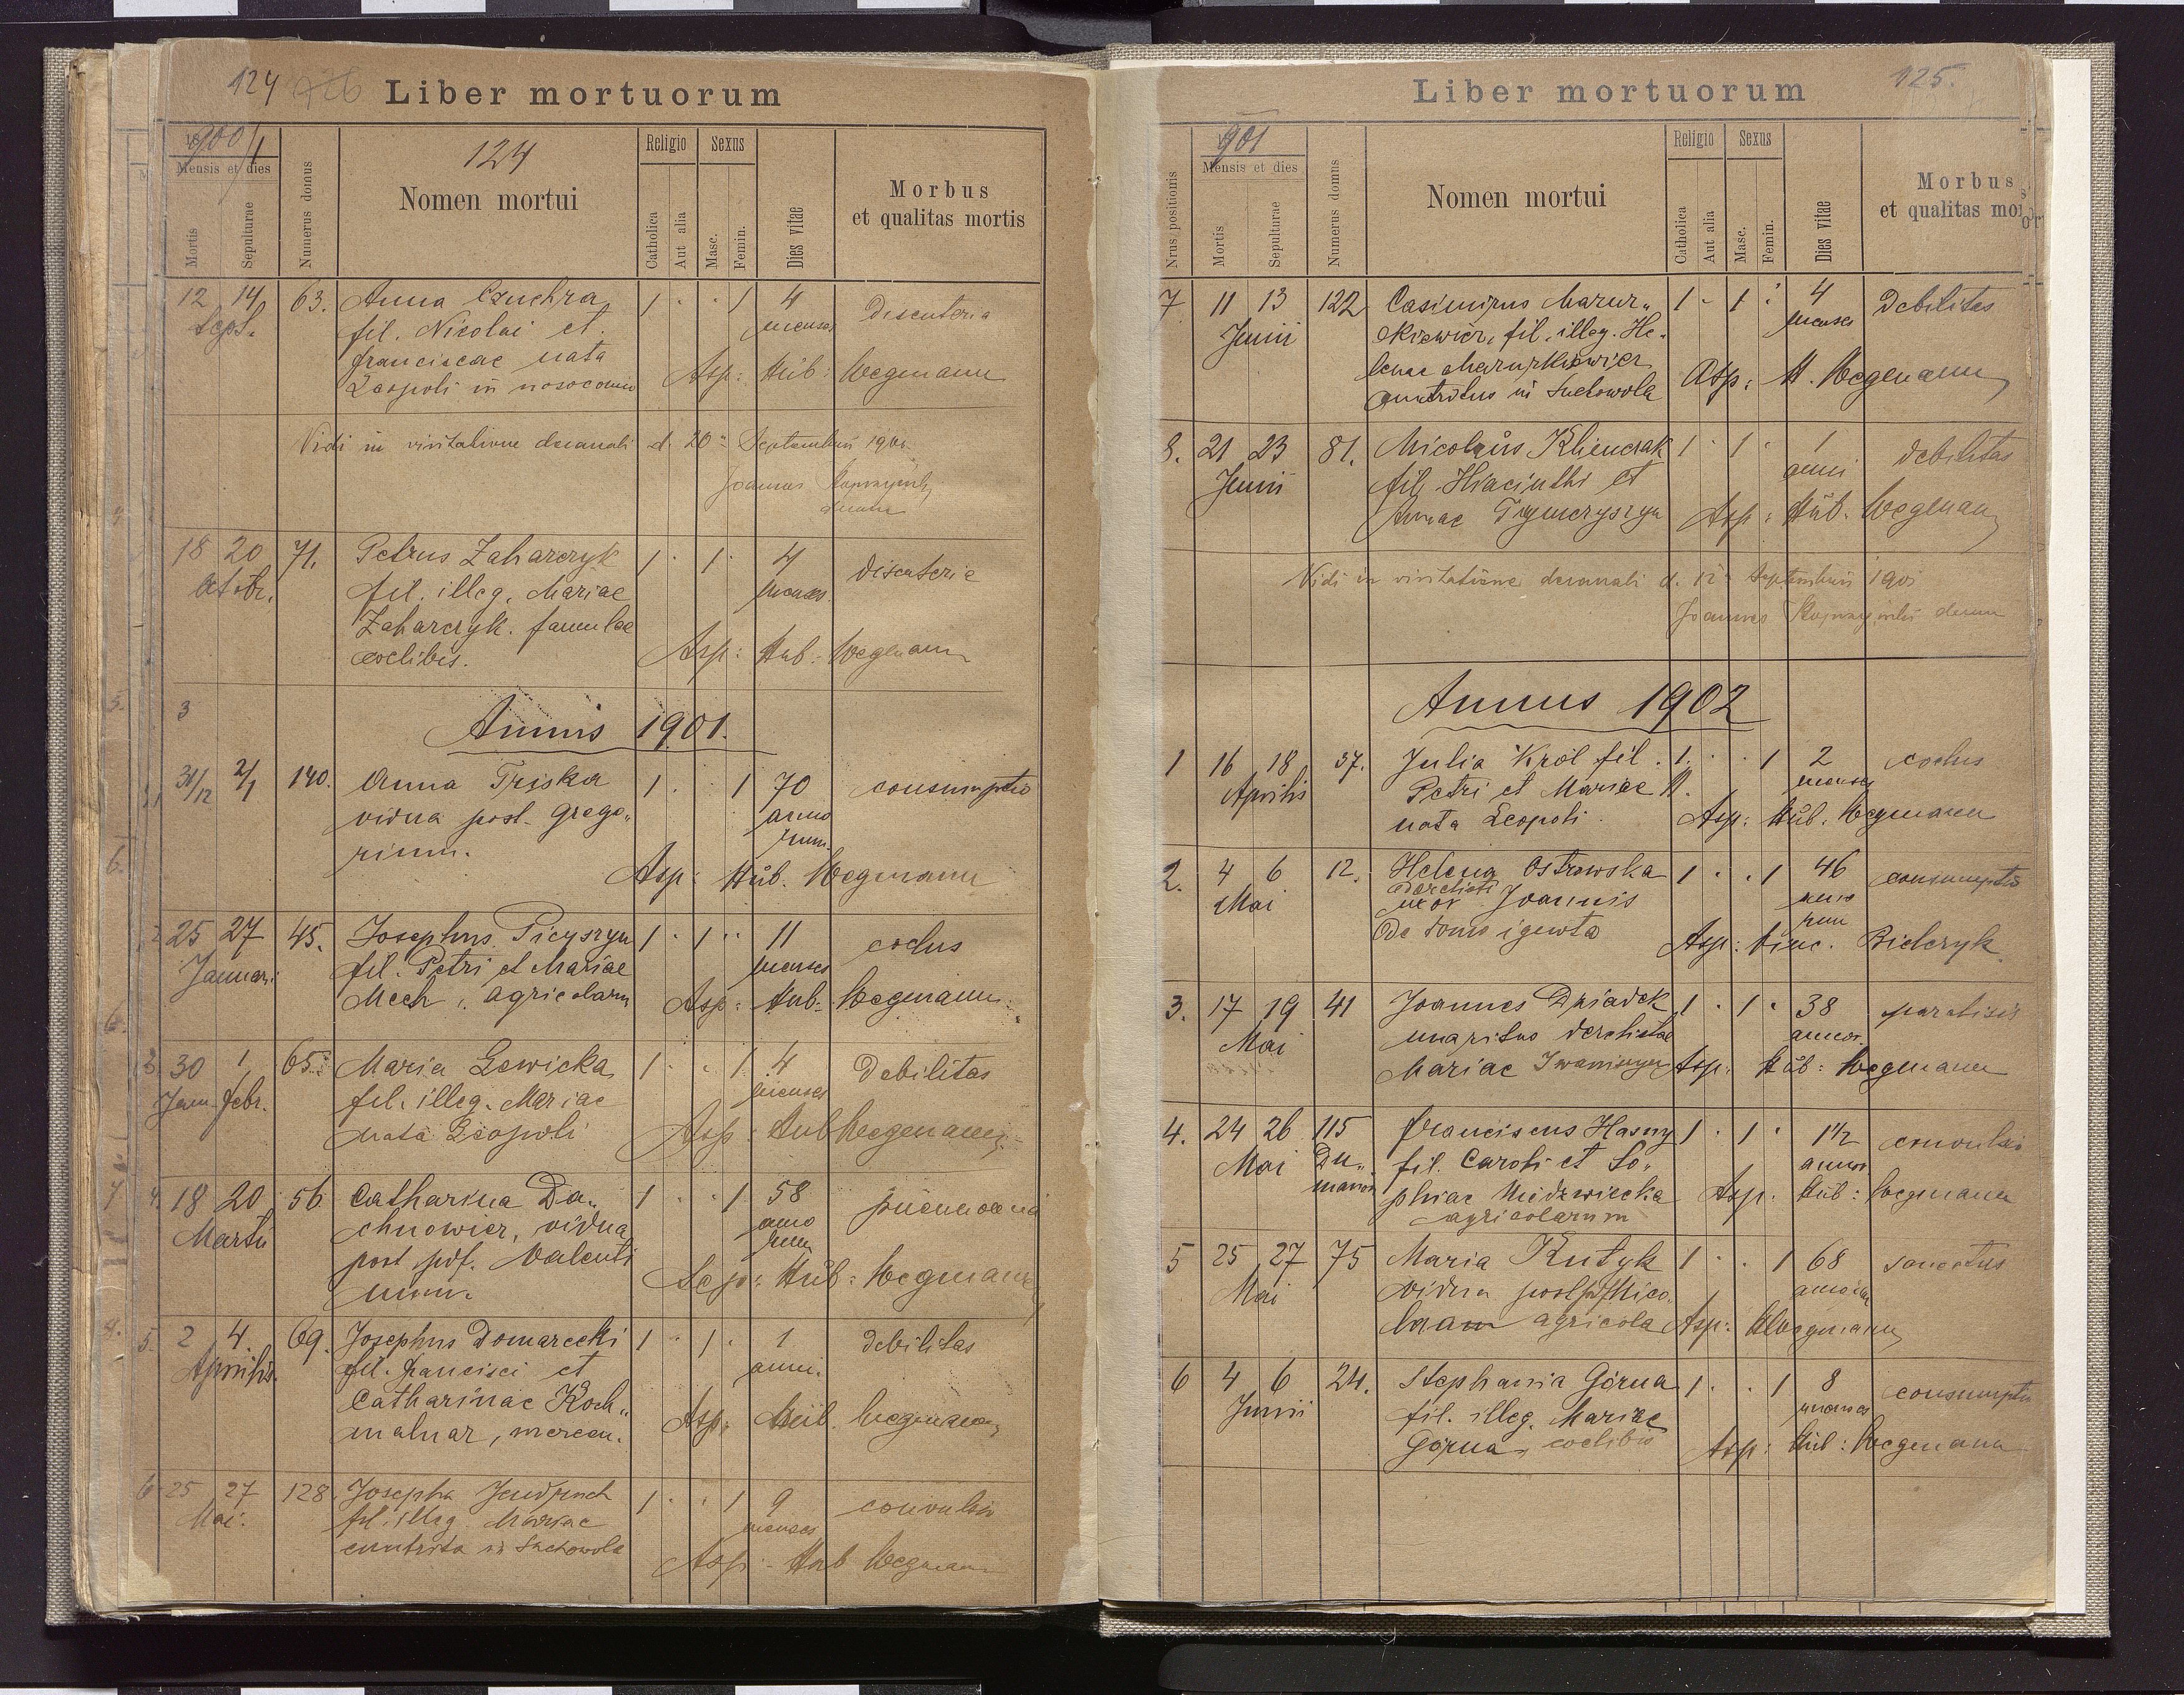 124
Liber mortuorum
1900/1
Mensis et dies
Mortis
Sepulturae
Numerus domus
124
Nomen mortui
Religio
Catholica
Aut alia
Sexus
Masc.
Femin.
Dies vitae
Morbus
et qualitas mortis
12 14 63. Anna Czuchra 1 · · 1 4 Disenteria
Sept. fil. Nicolai et menses
Franciscae nata
Leopoli in nosocomio Asp: Hüb: Wegmann
Vidi in visitatione decanali d. 20 Septembris 1901
Joannes
18 20 71. Petrus Zaharczyk 1 · 1 · 4 disenterie
Octobr. fil. illeg. Mariae menses.
Zaharczyk. famulae
coelibis. Asp: Hub: Wegmann
3
Annus 1901.
31/12 2/1 140. Anna Tryska 1 · · 1 70 consumptio
vidua post. Grego„ anno
rium. rum.
Asp: Hüb. Wegmann
2 25 27 45. Josephus Picyszyn 1 · 1 · 11 coclus
Januari fil. Petri et Mariae menses
Mech, agricolarum Asp: Hub: Wegmann.
3. 30 1 65. Maria Lewicka 1 · · 1 4 Debilitas
Jan. Febr. fil. illeg. Mariae menses
nata Leopoli Asp: Hub Wegmann
4. 18 20 56 Catharina Da„ 1 · · 1 58
Martii chnowicz, vidua anno
post pdf. Valenti rum
num. Sep: Hüb: Wegmann
5. 2 4. 69. Josephus Domarecki 1 · 1 · 1 debilitas
Aprilis. fil. Francisci et anni.
Catharinae Koch„
malnar, mercen. Asp: Hüb. Wegmann
6 25 27 128 Josepha 1 · · 1 9 convulsio
Mai. fil. illeg. Mariae menses
enutrita in Suchowola
Asp: Hub Wegmann
Liber mortuorum
125.
Nrus positionis
1901
Mensis et dies
Mortis
Sepulturae
Numerus domus
Nomen mortui
Religio
Catholica
Aut alia
Sexus
Masc.
Femin.
Dies vitae
Morbus
et qualitas mor
7 11 13 122 Casimirus Mazur„ 1 · 1 · 4 Debilitas
Junii kiewicz, fil. illeg. He„ menses
lenae Mazurkiewicz
enutritus in Suchowola Asp: H. Wegmann
8. 21 23 81. Nicolaus Klimczak 1 · 1 · 1 debilitas
Junii fil. Hiacinthi et anni
Annae Tymczyszyn Asp: Hüb. Wegmann
Vidi in visitatione decanali d. 12 Septembris 1901
Joannes
Annus 1902
1 16 18 37. Julia Król fil. 1 · · 1 2 coclus
Aprilis Petri et Mariae N. menses
nata Leopoli. Asp: Hüb. Wegmann
2. 4 6 12. Helena Ostrowska 1 · · 1 46 consumptio
Mai uxor Joannis anno
De domo ignota rum
Asp: Vinc. Bielczyk
3. 17 19 41 Joannes Dziadek 1 · 1 · 38
Mai maritus derelictae annos.
Mariae Iwaniszyn Asp: Hüb: Wegmann
4. 24 26 115 Franciscus Hasny 1 · 1 · 1 1/2 convulsio
Mai Du„ fil. Caroli et So„ annos
manow phiae Niedzwiecka Asp: Hüb: Wegmann
agricolarum
5 25 27 75 Maria Kutyk 1 · · 1 68
Mai vidua post pdf Nico„ annorum
laum agricola Asp: HWegmann
6 4 6 24. Stephania Górna 1 · · 1 8 consumptio
Junii fil. illeg. Mariae menses
Górna, coelibis Asp: Hüb: Wegmann